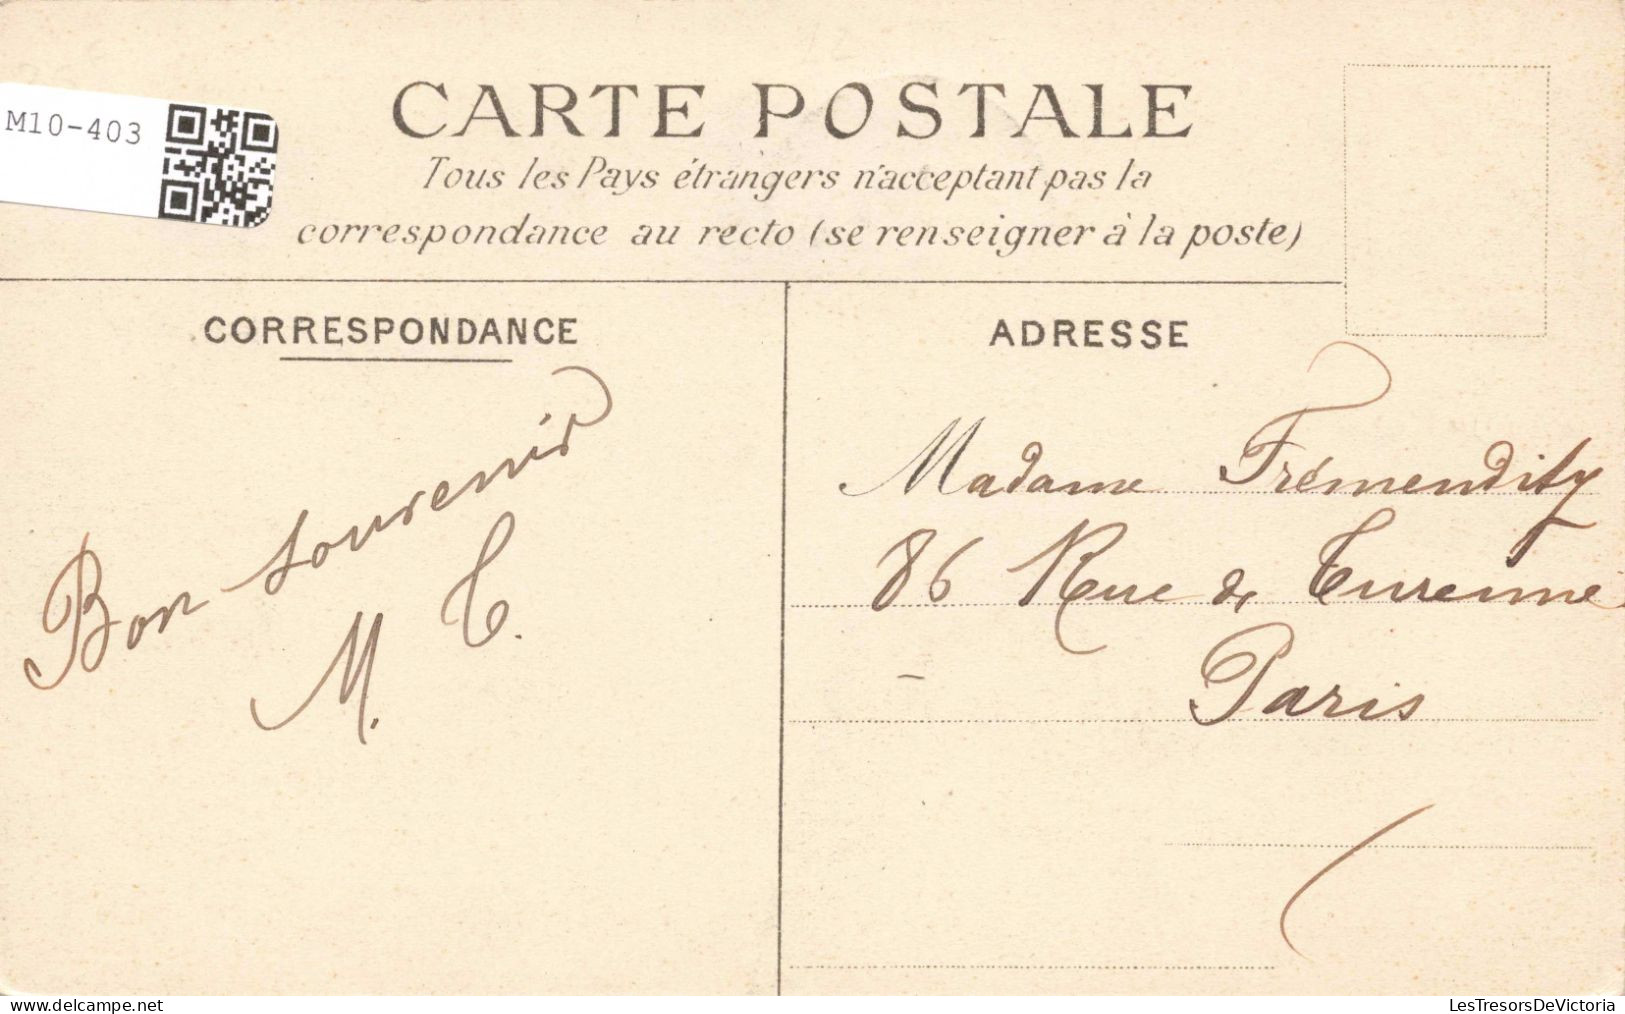 M10-403
CARTE POSTALE
Tous les Pays étrangers n'acceptant pas la
correspondance au recto (se renseigner à la poste)
CORRESPONDANCE
Bon souvenir
M. T.
ADRESSE
Madame
86 Rue de Turenne
Paris
M10-403
LesTresorsDeVictoria